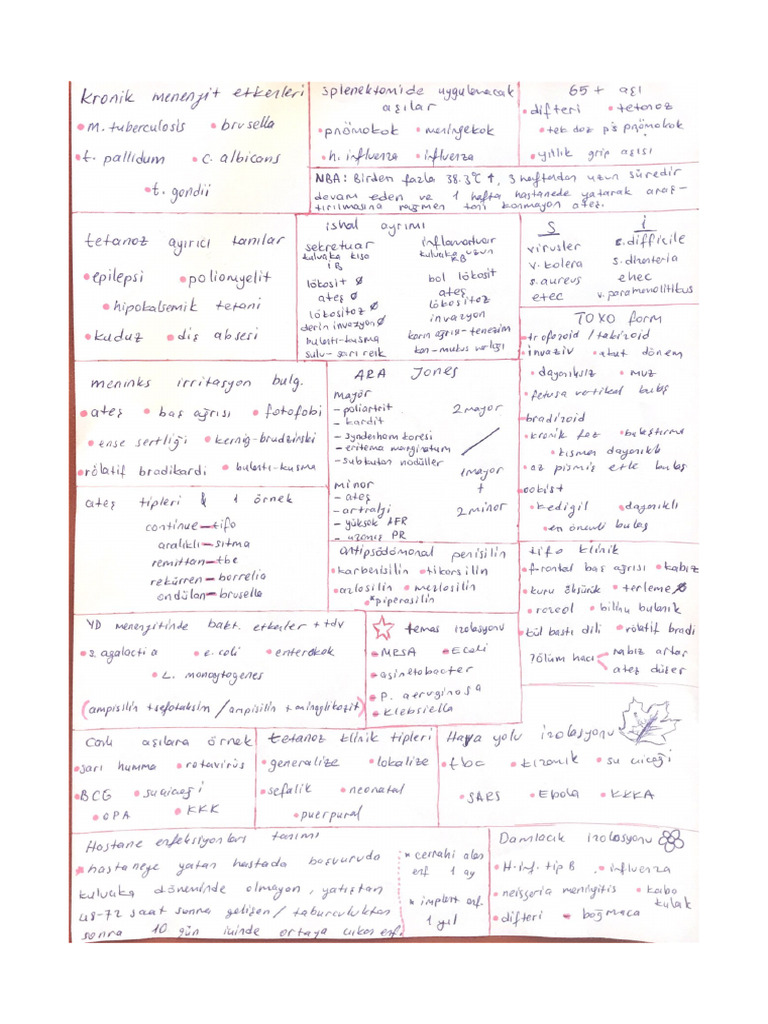 Kronik menenjit etkenleri
M. tuberculosis
brusella
t. pallidum
c. albicans
t. gondii
splenektomide uygulanacak
aşılar
pnömokok
meningekok
h. influenza
influenza
65+ aşı
difteri
tetanoz
tek doz pnömokok
yıllık grip aşısı
NBA: Birden fazla 38.3°C ↑, 3 haftadan uzun süredir
devam eden ve 1 hafta hastanede yatarak araş-
tırılmasına rağmen tanı konmayan ateş.
tetanoz ayırıcı tanılar
epilepsi
poliomyelit
hipokalsemik tetani
kuduz
diş absesi
ishal ayrımı
sekretuar
kuluçka kısa
lökosit Ø
ateş Ø
lökositoz Ø
derin invazyon Ø
bulantı-kusma
sulu-sarı renk
inflamatuar
kuluçka uzun
bol lökosit
ateş
lökositoz
invazyon
karın ağrısı-tenezim
kan-mukus varlığı
S
virusler
v. kolera
s. aureus
etec
i
c. difficile
s. dizenteria
ehec
v. paramolitikus
meninks irritasyon bulg.
ateş
baş ağrısı
fotofobi
ense sertliği
kernig-brudzinski
rölatif bradikardi
bulantı-kusma
ARA Jones
mayör
- poliartrit
- kardit
- syndenham koresi
- eritema marginatum
- subkutan nodüller
minor
- ateş
- artralji
- yüksek AFR
- uzamış PR
2 mayor
1 mayor
+
2 minor
TOXO form
trofozoid / takizoid
invaziv
akut dönem
dayanıksız
muz
fetusa vertikal bulaş
bradizoid
kronik faz
buluştırma
kısmen dayanıklı
az pişmiş etle bulaş
oobist
kedigil
dayanıklı
en önemli bulaş
ateş tipleri & 1 örnek
continue — tifo
aralıklı — sıtma
remittan — tbc
rekürren — borrelia
ondülan — brusella
antipsödomonal penisilin
karbenisilin
tikarsilin
azlosilin
mezlosilin
*piperasilin
tifo klinik
frontal baş ağrısı
kabız
kuru öksürük
terleme Ø
rozeol
bilinç bulanık
kül bastı dili
rölatif bradi
?ölüm hacı
nabız artar
ateş düşer
YD menenjitinde bakt. etkenler + tdv
s. agalactia
e. coli
enterokok
L. monoytogenes
(ampisilin + sefotaksim / ampisilin + aminoglikozit)
temas izolasyonu
MRSA
E coli
asinetobacter
P. aeruginosa
Klebsiella
Canlı aşılara örnek
sarı humma
rotavirüs
BCG
suçiçeği
OPA
KKK
tetanoz klinik tipleri
generalize
lokalize
sefalik
neonatal
puerpural
Hava yolu izolasyonu
tbc
kızamık
su çiçeği
SARS
Ebola
KKKA
Hastane enfeksiyonları tanımı
hastaneye yatan hastada başvuruda
kuluçka döneminde olmayan, yatıştan
48-72 saat sonra gelişen / taburculuktan
sonra 10 gün içinde ortaya çıkan enf.
* cerrahi alan
enf 1 ay
* implant enf.
1 yıl
Damlacık izolasyonu
H. inf. tip B
influenza
neisseria menigitis
kaba
kulak
difteri
boğmaca